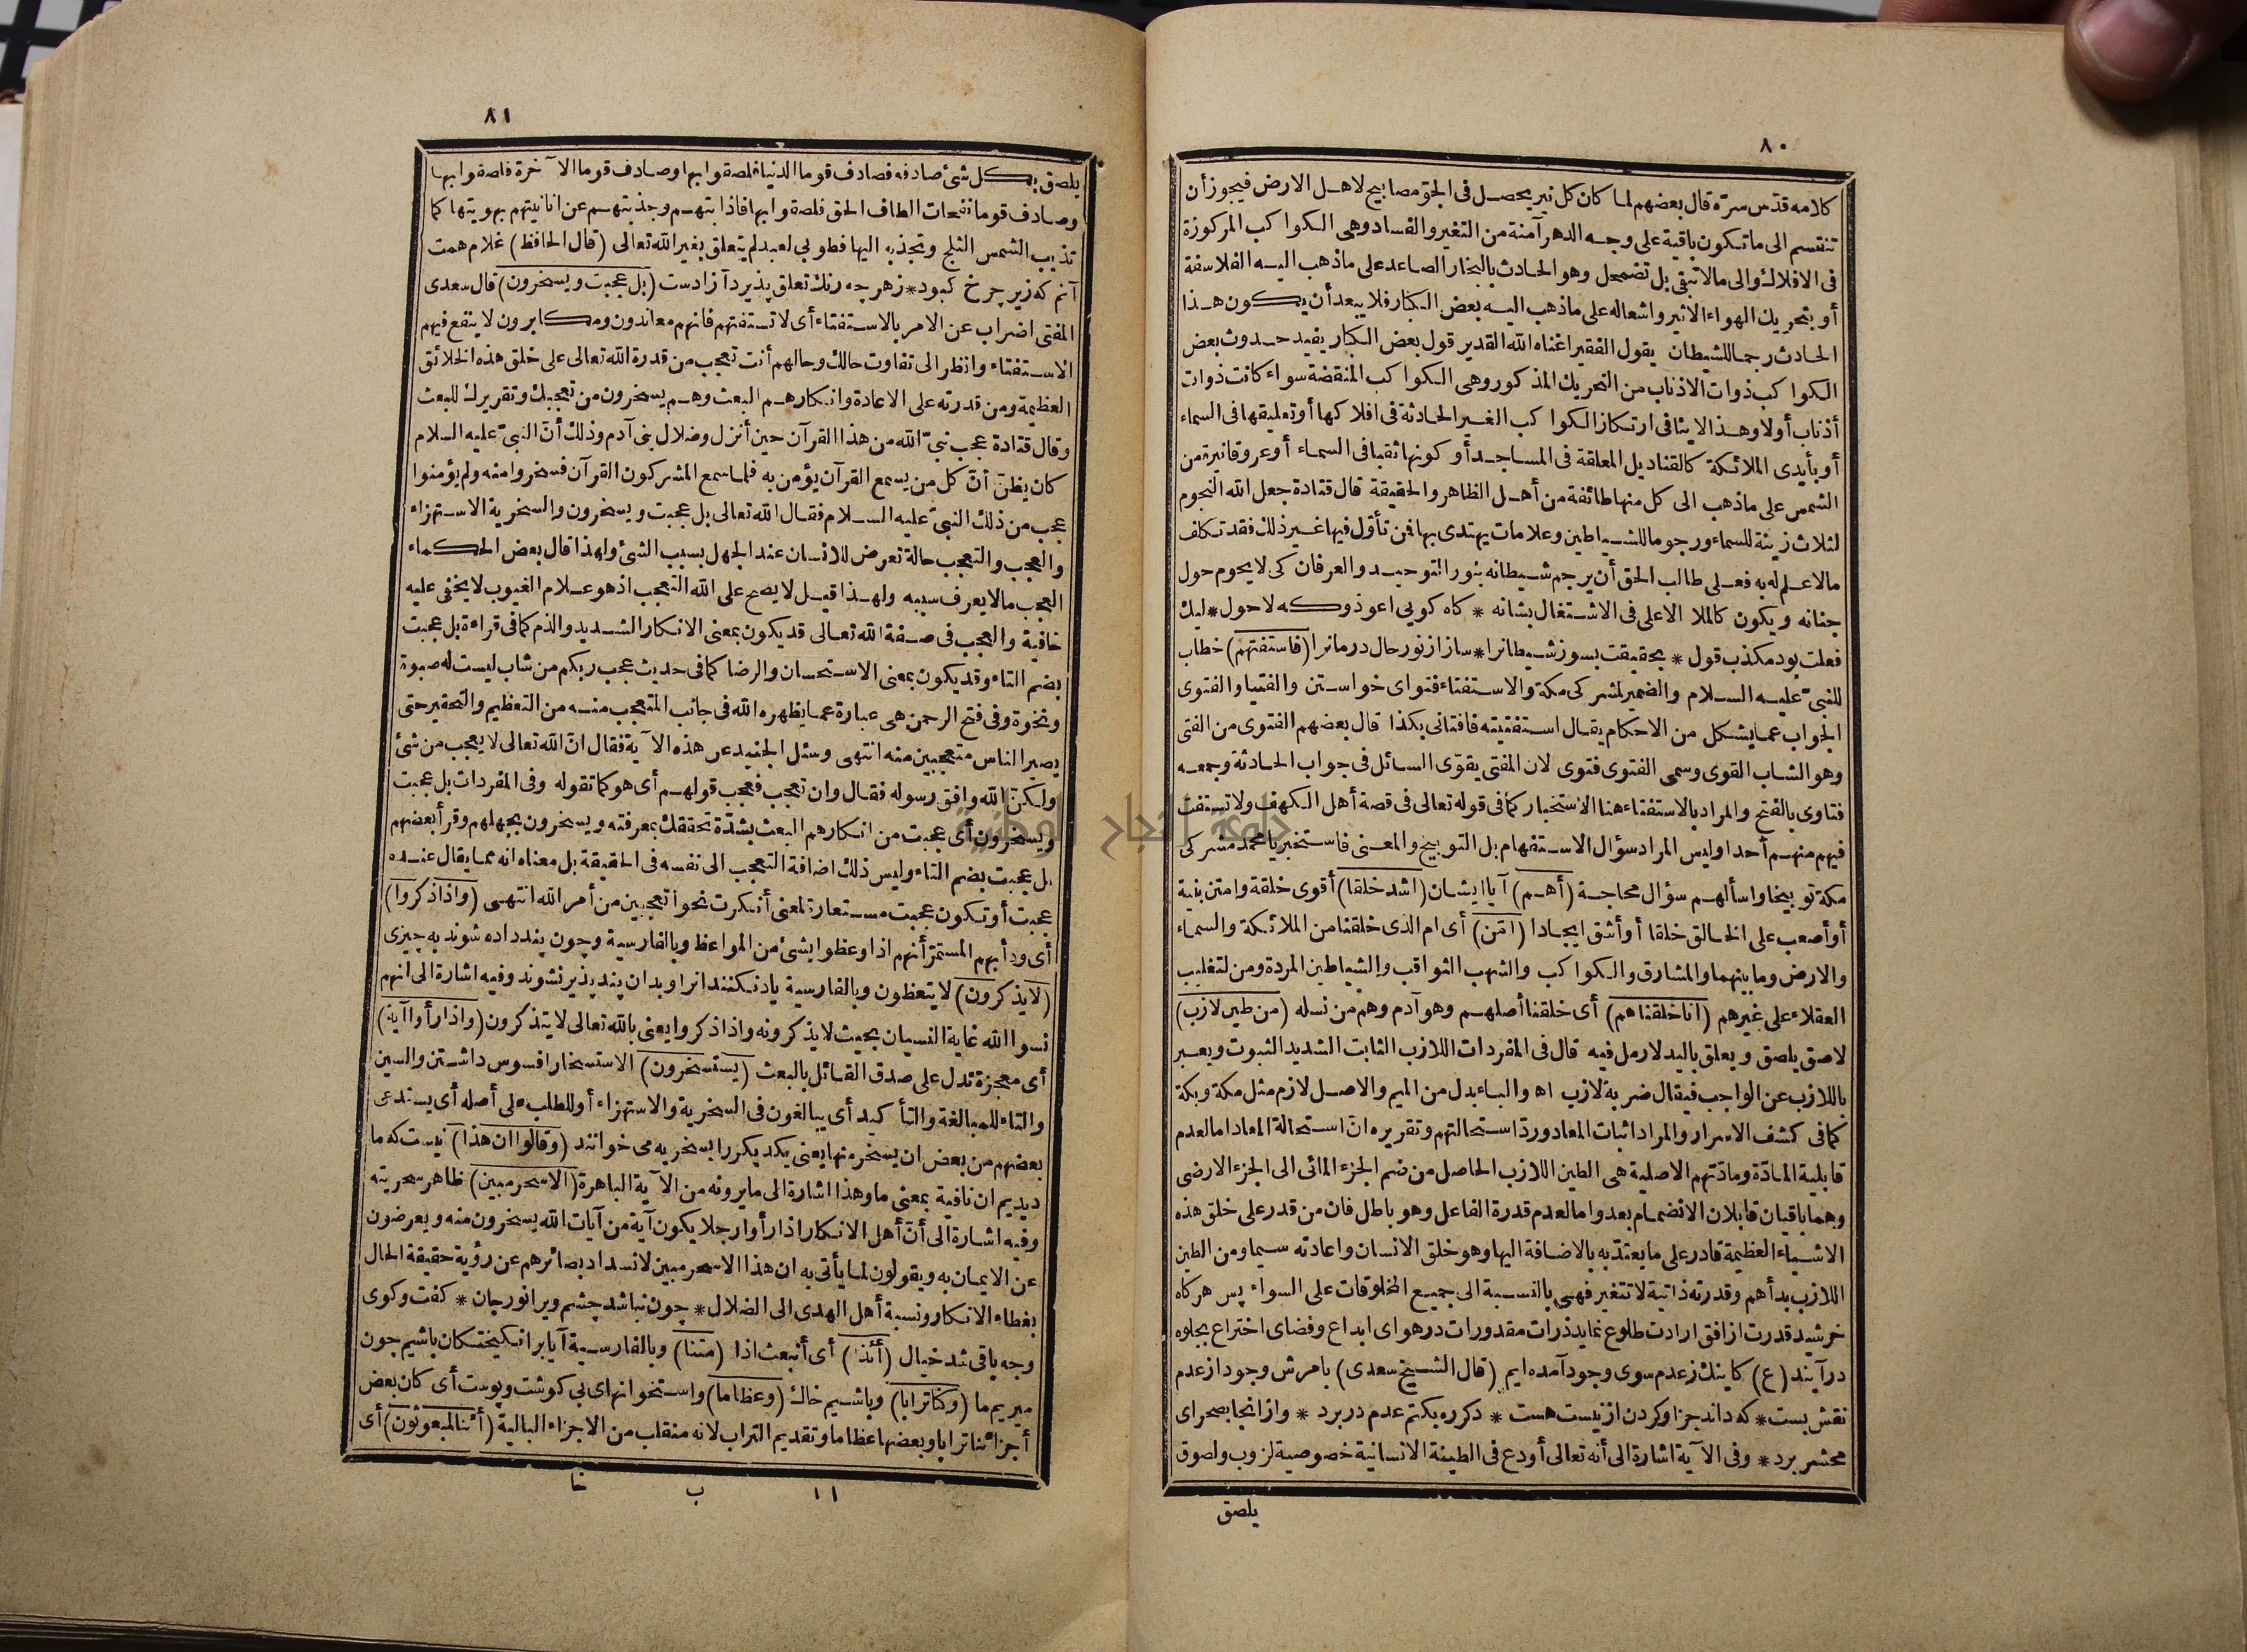 ٨٠
كلامه قدّس سرّه قال بعضهم لما كان كل نير يحصل فى الجوّ مصابيح لاهل الارض فيجوز أن
تنقسم الى ما تكون باقية على وجه الدهر آمنة من التغير والفساد وهى الكواكب المركوزة
فى الافلاك والى مالا تبقى بل تضمحل وهو الحادث بالبخار الصاعد على ما ذهب اليه الفلاسفة
أو بتحريك الهواء الاثير واشعاله على ما ذهب اليه بعض الكبار فلا يبعد أن يكون هذا
الحادث رجما للشيطان يقول الفقير اغناه الله القدير قول بعض الكبار يفيد حدوث بعض
الكواكب ذوات الاذناب من التحريك المذكور وهى الكواكب المنقضة سواء كانت ذوات
أذناب أولا وهذا لا ينافى ارتكاز الكواكب الغير الحادثة فى افلاكها أو تعليقها فى السماء
أو بأيدى الملائكة كالقناديل المعلقة فى المساجد أو كونها ثقبا فى السماء أو عروقا نيرة من
الشمس على ما ذهب الى كل منها طائفة من أهل الظاهر والحقيقة قال قتادة جعل الله النجوم
لثلاث زينة للسماء ورجوما للشياطين وعلامات يهتدى بها فمن تأوّل فيها غير ذلك فقد تكلف
مالا علم له به فعلى طالب الحق أن يرجم شيطانه بنور التوحيد والعرفان كى لا يحوم حول
جنانه ويكون كالملا الاعلى فى الاشتغال بشانه * كاه كويى اعوذ وكه لا حول * ليك
فعلت بود مكذب قول * بحقيقت بسوز شيطانرا * ساز از نور حال درمانرا (فاستفتهم) خطاب
للنبىّ عليه السلام والضمير لمشركى مكة والاستفتاء فتواى خواستن والفتيا والفتوى
الجواب عما يشكل من الاحكام يقال استفتيته فافتانى بكذا قال بعضهم الفتوى من الفتى
وهو الشاب القوى وسمى الفتوى فتوى لان المفتى يقوّى السائل فى جواب الحادثة وجمعه
فتاوى بالفتح والمراد بالاستفتاء هنا الاستخبار كما فى قوله تعالى فى قصة أهل الكهف ولا تستفت
فيهم منهم أحدا وليس المراد سؤال الاستفهام بل التوبيخ والمعنى فاستخبر يا محمد مشركى
مكة توبيخا واسألهم سؤال محاجة (أهم) آيا ايشان (اشد خلقا) أقوى خلقة وامتن بنية
أو أصعب على الخالق خلقا أو أشق ايجادا (امّن) أى ام الذى خلقنا من الملائكة والسماء
والارض وما بينهما والمشارق والكواكب والشهب الثواقب والشياطين المردة ومن لتغليب
العقلاء على غيرهم (انا خلقناهم) أى خلقنا أصلهم وهو آدم وهم من نسله (من طين لازب)
لاصق يلصق ويعلق باليد لا رمل فيه قال فى المفردات اللازب الثابت الشديد الثبوت ويعبر
باللازب عن الواجب فيقال ضربة لازب اه والباء بدل من الميم والاصل لازم مثل مكة وبكة
كما فى كشف الاسرار والمراد اثبات المعاد وردّ استحالتهم وتقريره انّ استحالة المعاد اما لعدم
قابلية المادّة ومادّتهم الاصلية هى الطين اللازب الحاصل من ضم الجزء المائى الى الجزء الارضى
وهما باقيان قابلان الانضمام بعد واما لعدم قدرة الفاعل وهو باطل فان من قدر على خلق هذه
الاشياء العظيمة قادر على ما يعتدّ به بالاضافة اليها وهو خلق الانسان واعادته سيما ومن الطين
اللازب بدأهم وقدرته ذاتية لا تتغير فهى بالنسبة الى جميع المخلوقات على السواء پس هركاه
خرشيد قدرت از افق ارادت طلوع نمايد ذرات مقدورات در هواى ابداع وفضاى اختراع بجلوه
درآيند (ع) كاينك ز عدم سوى وجود آمده ايم (قال الشيخ سعدى) بامرش وجود از عدم
نقش بست * كه داند جز او كردن از نيست هست * دكر ره بكتم عدم در برد * واز انجا بصحراى
محشر برد * وفى الآية اشارة الى أنه تعالى أودع فى الطينة الانسانية خصوصية لزوب ولصوق
يلصق
٨١
يلصق بكل شئ صادفه فصادف قوما الدنيا فلصقوا بها وصادف قوما الآخرة فلصقوا بها
وصادف قوما نفحات الطاف الحق فلصقوا بها فاذابتهم وجذبتهم عن انانيتهم بهويتها كما
تذيب الشمس الثلج وتجذبه اليها فطوبى لعبد لم يتعلق بغير الله تعالى (قال الحافظ) غلام همت
آنم كه زير چرخ كبود * زهر چه رنك تعلق پذيرد آزادست (بل عجبت ويسخرون) قال سعدى
المفتى اضراب عن الامر بالاستفتاء أى لا تستفتهم فانهم معاندون ومكابرون لا ينفع فيهم
الاستفتاء وانظر الى تفاوت حالك وحالهم أنت تعجب من قدرة الله تعالى على خلق هذه الخلائق
العظيمة ومن قدرته على الاعادة وانكارهم البعث وهم يسخرون من تعجبك وتقريرك للبعث
وقال قتادة عجب نبىّ الله من هذا القرآن حين أنزل وضلال بنى آدم وذلك أنّ النبىّ عليه السلام
كان يظنّ أنّ كل من يسمع القرآن يؤمن به فلما سمع المشركون القرآن فسخروا منه ولم يؤمنوا
عجب من ذلك النبىّ عليه السلام فقال الله تعالى بل عجبت ويسخرون والسخرية الاستهزاء
والعجب والتعجب حالة تعرض للانسان عند الجهل بسبب الشئ ولهذا قال بعض الحكماء
العجب مالا يعرف سببه ولهذا قيل لا يصح على الله التعجب اذ هو علام الغيوب لا يخفى عليه
خافية والعجب فى صفة الله تعالى قد يكون بمعنى الانكار الشديد والذم كما فى قراءة بل عجبت
بضم التاء وقد يكون بمعنى الاستحسان والرضا كما فى حديث عجب ربكم من شاب ليست له صبوة
ونخوة وفى فتح الرحمن هى عبارة عما يظهره الله فى جانب المتعجب منه من التعظيم والتحقير حتى
يصير الناس متعجبين منه انتهى وسئل الجنيد عن هذه الآية فقال انّ الله تعالى لا يعجب من شئ
ولكنّ الله وافق رسوله فقال وان تعجب فعجب قولهم أى هو كما تقوله وفى المفردات بل عجبت
ويسخرون أى عجبت من انكارهم البعث بشدّة تحققك بمعرفته ويسخرون بجهلهم وقرأ بعضهم
بل عجبت بضم التاء وليس ذلك اضافة التعجب الى نفسه فى الحقيقة بل معناه انه مما يقال عنده
عجبت أو تكون عجبت مستعارة لمعنى أنكرت نحو أتعجبين من أمر الله انتهى (واذا ذكروا)
أى ودأبهم المستمرّ أنهم اذا وعظوا بشئ من المواعظ وبالفارسية وچون پند داده شوند به چيزى
(لا يذكرون) لا يتعظون وبالفارسية ياد نكنند انرا وبدان پند پذير نشوند وفيه اشارة الى انهم
نسوا الله غاية النسيان بحيث لا يذكرونه واذا ذكروا يعنى بالله تعالى لا يتذكرون (واذا رأوا آية)
أى معجزة تدل على صدق القائل بالبعث (يستسخرون) الاستسخار افسوس داشتن والسين
والتاء للمبالغة والتأكيد أى يبالغون فى السخرية والاستهزاء أو للطلب على أصله أى يستدعى
بعضهم من بعض ان يسخر منها يعنى يكديكررا بسخريه مى خوانند (وقالوا ان هذا) نيست كه ما
ديديم ان نافية بمعنى ما وهذا اشارة الى ما يرونه من الآية الباهرة (الا سحر مبين) ظاهر سحريته
وفيه اشارة الى أنّ أهل الانكار اذا رأوا رجلا يكون آية من آيات الله يسخرون منه ويعرضون
عن الايمان به ويقولون لما يأتى به ان هذا الا سحر مبين لانسداد بصائرهم عن رؤية حقيقة الحال
بغطاء الانكار ونسبة أهل الهدى الى الضلال * چون نباشد چشم ويرا نور جان * كفت وكوى
وجه باقى شد خيال (أئذا) أى أنبعث اذا (متنا) وبالفارسية آيا بر انكيختكان باشيم چون
ميريم ما (وكنا ترابا) وباشيم خاك (وعظاما) واستخوانهاى بى كوشت وپوست أى كان بعض
أجزائنا ترابا وبعضها عظاما وتقديم التراب لانه منقلب من الاجزاء البالية (أئنا لمبعوثون) أى
١١ ب
جامعة النجاح الوطنية